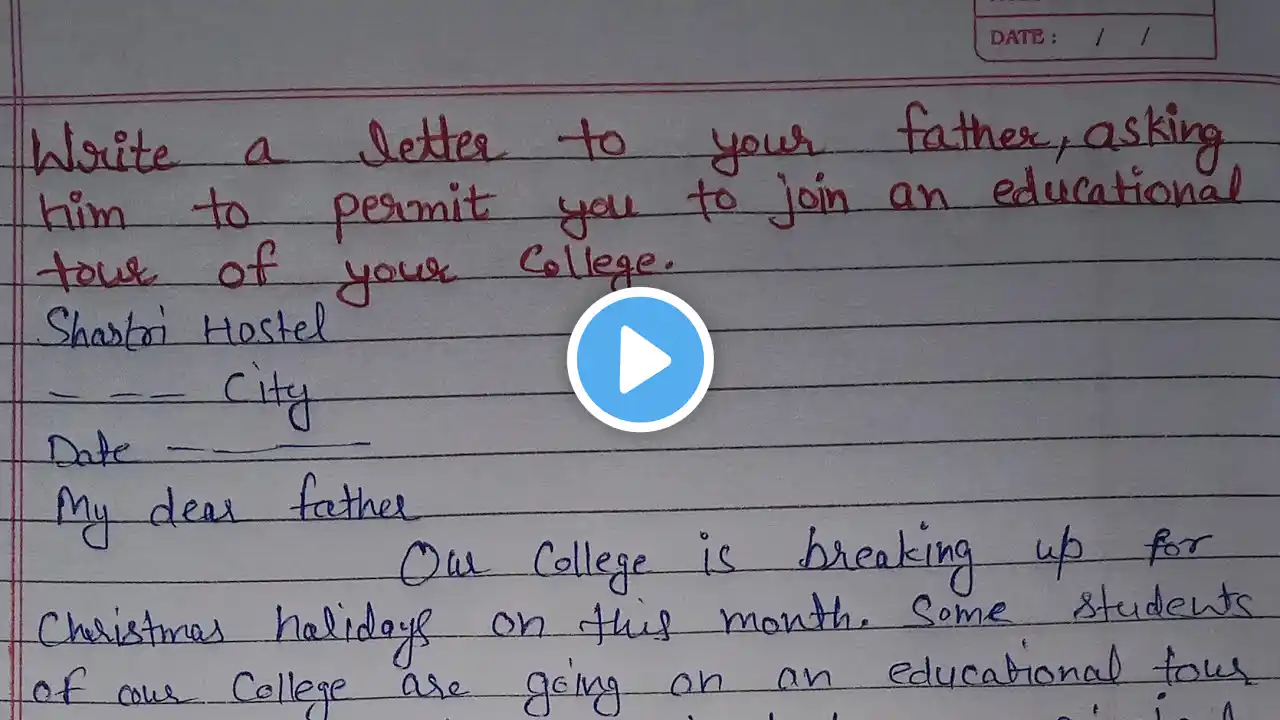 DATE : / /
Write a letter to your father, asking
him to permit you to join an educational
tour of your College.
Shastri Hostel
_ _ _ City
Date _ _ _
My dear father
Our College is breaking up for
Christmas holidays on this month. Some students
of our College are going on an educational tour